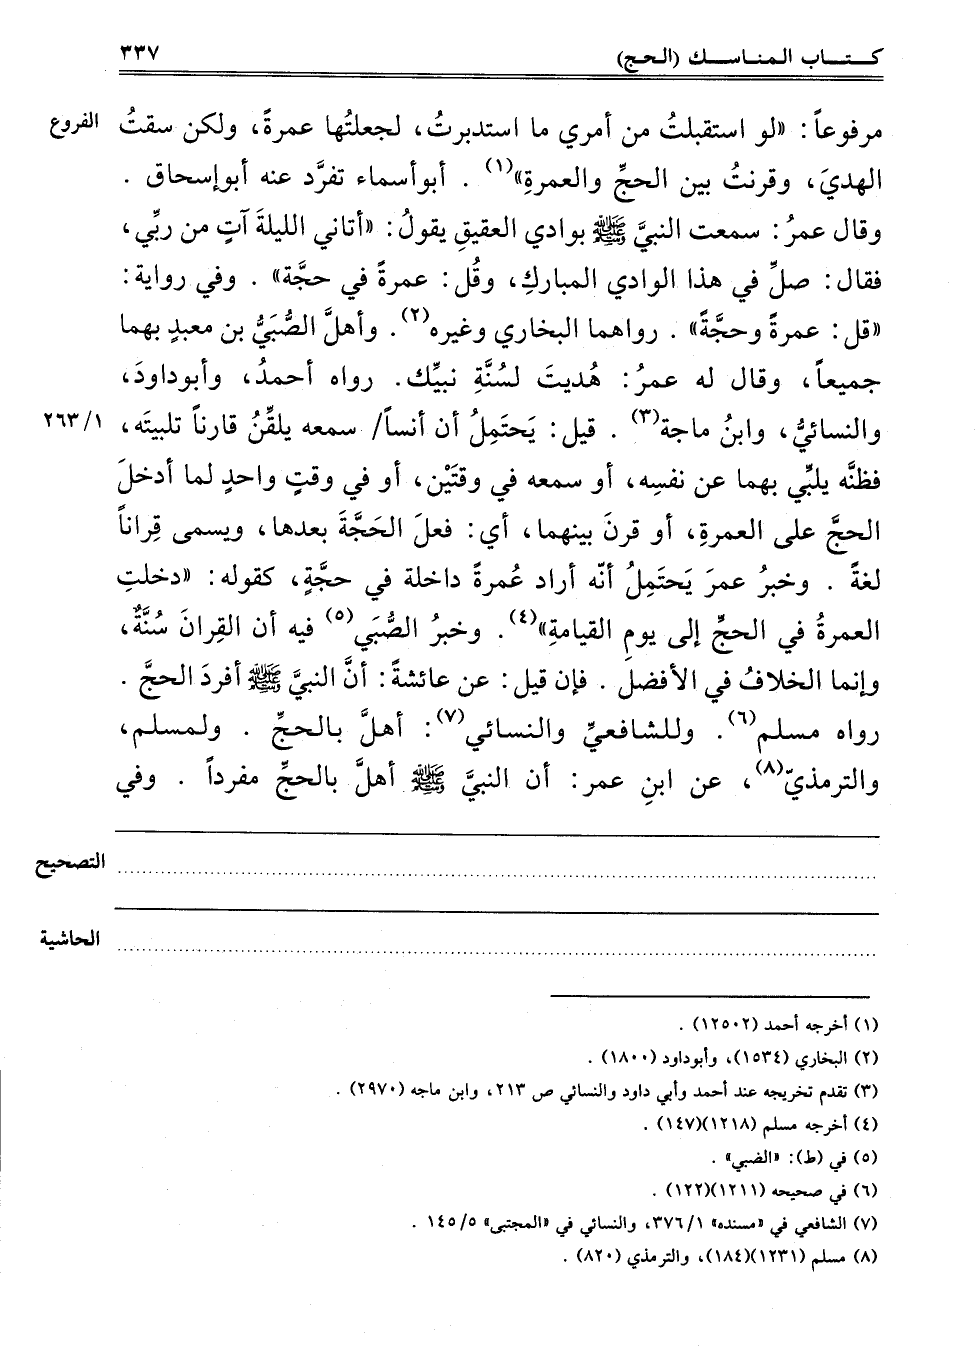 كتاب المناسك (الحج) ٣٣٧
مرفوعاً: «لو استقبلتُ من أمري ما استدبرتُ، لجعلتُها عمرةً، ولكن سقتُ الفروع
الهديَ، وقرنتُ بين الحجِّ والعمرةِ»(١) . أبوأسماء تفرَّد عنه أبوإسحاق .
وقال عمرُ: سمعت النبيَّ ﷺ بوادي العقيقِ يقولُ: «أتاني الليلةَ آتٍ من ربِّي،
فقال: صلِّ في هذا الوادي المباركِ، وقُل: عمرةً في حجَّة» . وفي رواية:
«قل: عمرةً وحجَّةً» . رواهما البخاري وغيره(٢). وأهلَّ الصُّبَيُّ بن معبدٍ بهما
جميعاً، وقال له عمرُ: هُديتَ لسُنَّةِ نبيِّك. رواه أحمدُ، وأبوداودَ،
والنسائيُّ، وابنُ ماجة(٣) . قيل: يَحتَمِلُ أن أنساً/ سمعه يلقِّنُ قارناً تلبيتَه، ٢٦٣/١
فظنَّه يلبِّي بهما عن نفسِه، أو سمعه في وقتَيْن، أو في وقتٍ واحدٍ لما أدخلَ
الحجَّ على العمرةِ، أو قرنَ بينهما، أي: فعلَ الحَجَّةَ بعدها، ويسمى قِراناً
لغةً . وخبرُ عمرَ يَحتَمِلُ أنّه أراد عُمرةً داخلة في حجَّةٍ، كقوله: «دخلتِ
العمرةُ في الحجِّ إلى يومِ القيامةِ»(٤). وخبرُ الصُّبَي(٥) فيه أن القِرانَ سُنَّةٌ،
وإنما الخلافُ في الأفضل . فإن قيل: عن عائشةَ: أنَّ النبيَّ ﷺ أفردَ الحجَّ .
رواه مسلم(٦). وللشافعيِّ والنسائي(٧): أهلَّ بالحجِّ . ولمسلم،
والترمذيّ(٨)، عن ابنِ عمر: أن النبيَّ ﷺ أهلَّ بالحجِّ مفرداً . وفي
التصحيح
الحاشية
(١) أخرجه أحمد (١٢٥٠٢) .
(٢) البخاري (١٥٣٤)، وأبوداود (١٨٠٠) .
(٣) تقدم تخريجه عند أحمد وأبي داود والنسائي ص ٢١٣، وابن ماجه (٢٩٧٠) .
(٤) أخرجه مسلم (١٢١٨)(١٤٧) .
(٥) في (ط): «الضبي» .
(٦) في صحيحه (١٢١١)(١٢٢) .
(٧) الشافعي في «مسنده» ٣٧٦/١، والنسائي في «المجتبى» ١٤٥/٥ .
(٨) مسلم (١٢٣١)(١٨٤)، والترمذي (٨٢٠) .